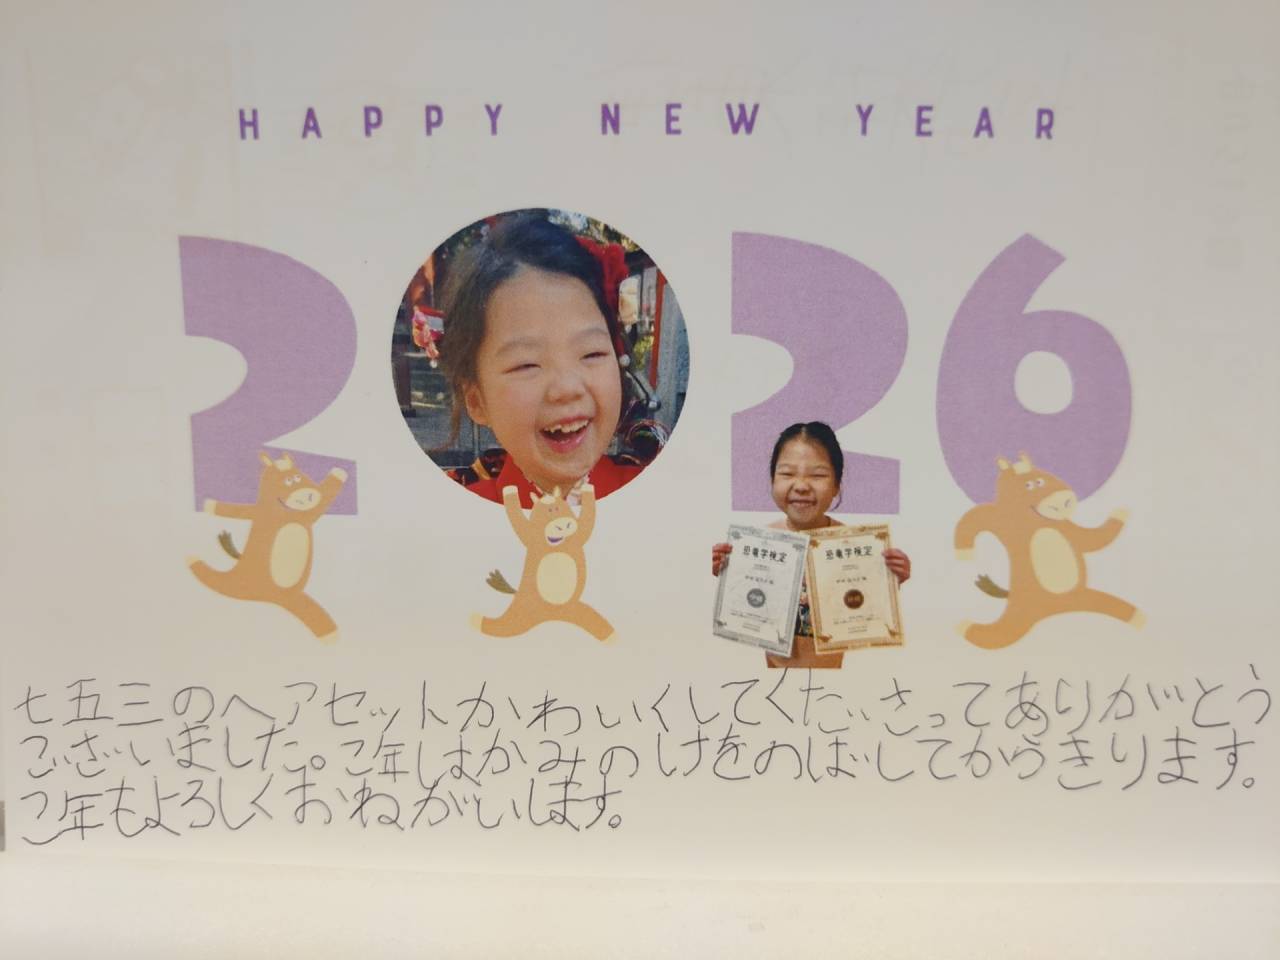 HAPPY NEW YEAR
2026
恐竜学検定
恐竜学検定
七五三のヘアセットかわいくしてくださってありがとう
ございました。こ年はかみのけをのばしてからきります。
こ年もよろしくおねがいします。